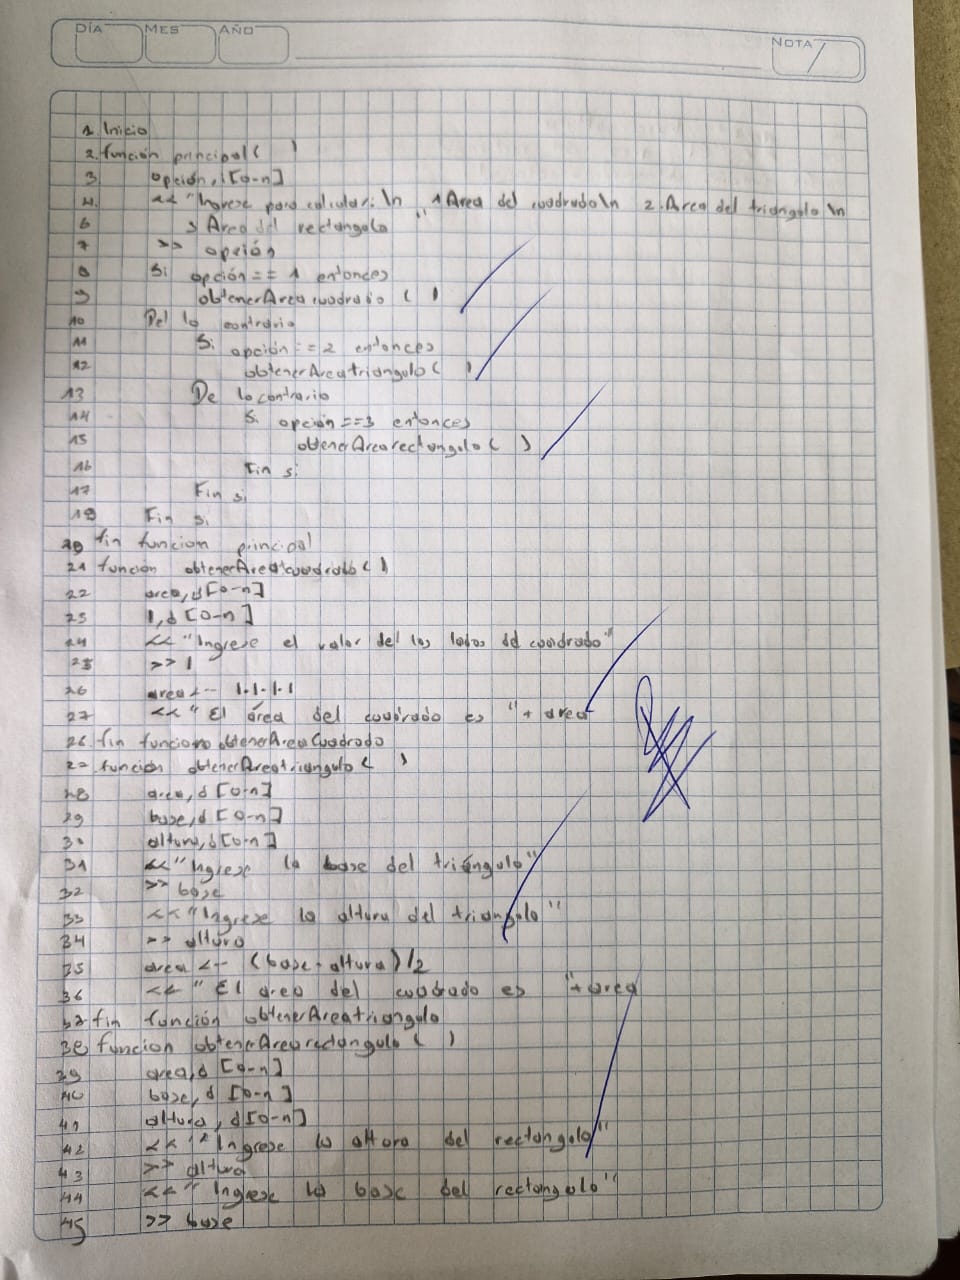 DÍA MES AÑO NOTA
1. Inicio
2. función principal ( )
3. opción, i [0-n]
4. << "Ingrese para calcular: \n 1 Area del cuadrado \n 2. Area del triangulo \n
6 3 Area del rectangulo "
7 >> opción
8 Si opción == 1 entonces
9 obtenerArea cuadrado ( )
10 Del lo contrario
11 Si opción == 2 entonces
12 obtenerAreatriangulo ( )
13 De lo contrario
14 Si opción ==3 entonces
15 obtenerArearectangulo ( )
16 Fin si
17 Fin si
18 Fin si
20 fin funcion principal
21 función obtenerAreacuadrado ( )
22 area, d [0-n]
23 l, d [0-n]
24 << "Ingrese el valor del los lados del cuadrado"
25 >> l
26 area <- l.l.l.l
27 << "El área del cuadrado es "+ area
26. fin funciono obtenerAreaCuadrado
27. función obtenerAreatriangulo ( )
28 area, d [0-n]
29 base, d [0-n]
30 altura, d [0-n]
31 << "Ingrese la base del triángulo"
32 >> base
33 << "Ingrese la altura del triangulo"
34 >> altura
35 area <- (base - altura) / 2
36 << "El area del cuadrado es "+ area
37 fin función obtenerAreatriangulo
38 funcion obtenerArearectangulo ( )
39 area, d [0-n]
40 base, d [0-n]
41 altura, d [0-n]
42 << "Ingrese la altura del rectangulo"
43 >> altura
44 << "Ingrese la base del rectangulo"
45 >> base